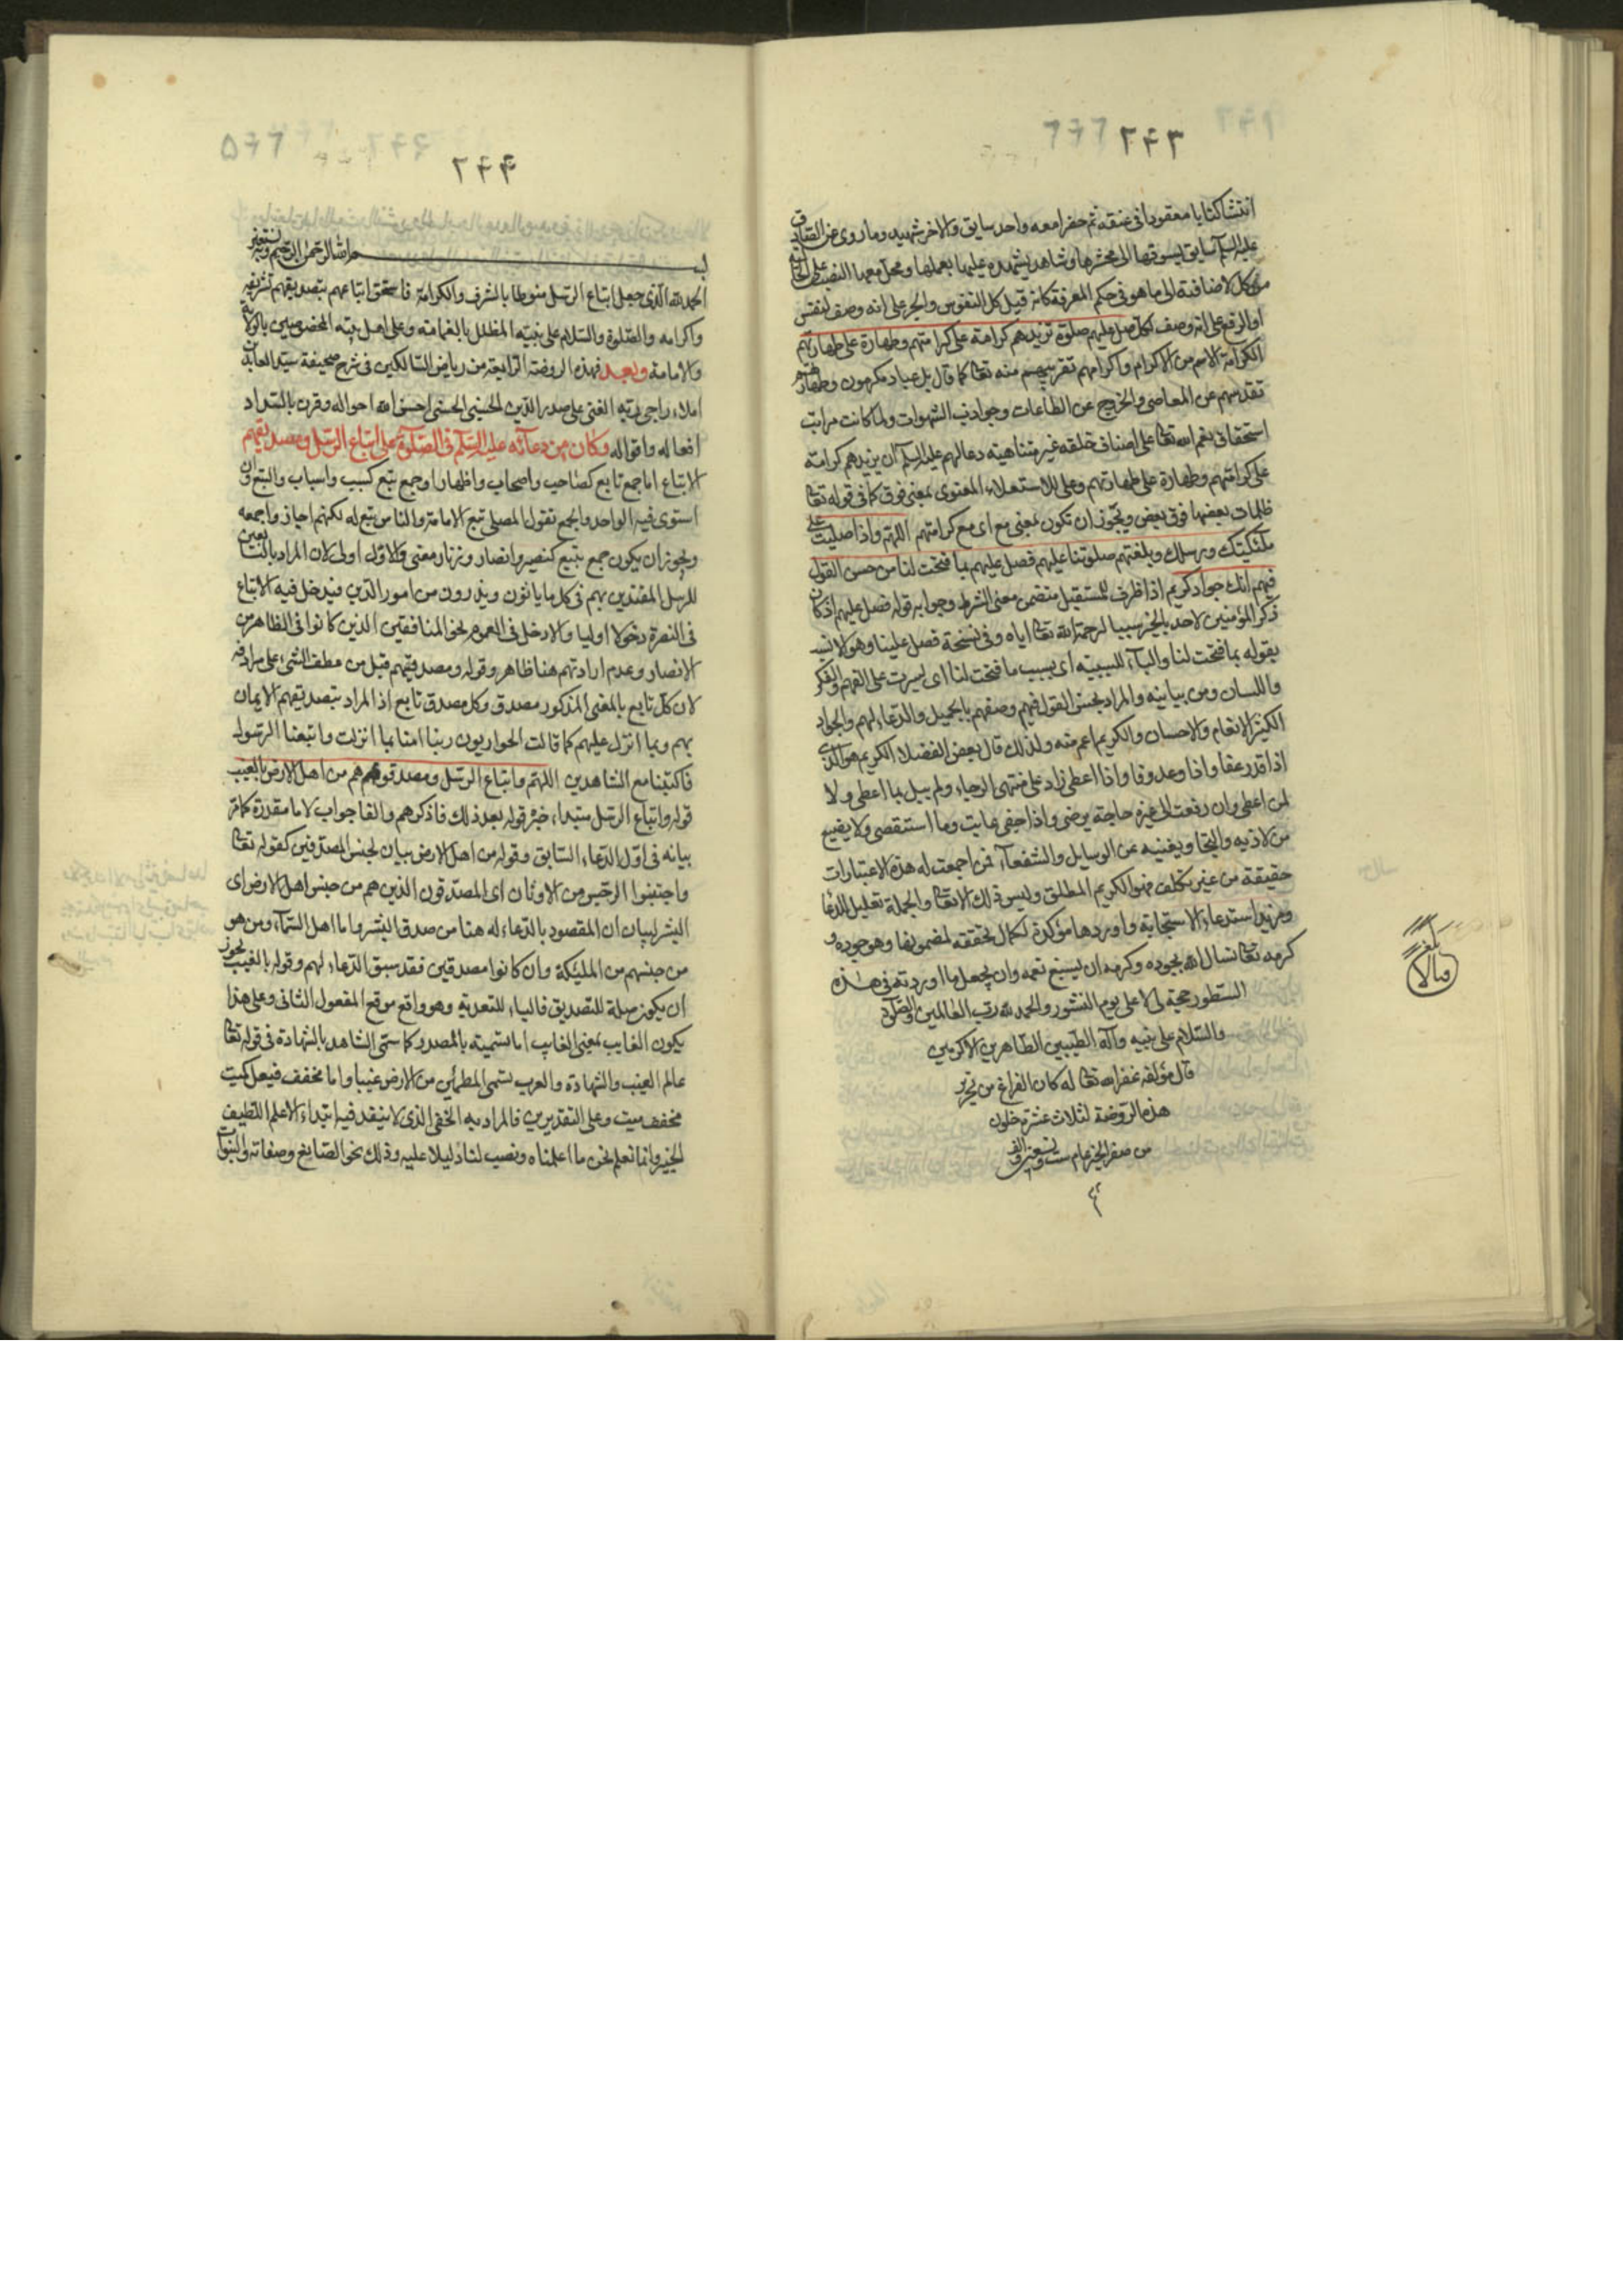 ٢٤٣
انتشا كتابا معقودا فى عنقه ثم حضرا معه واحد سايق والاخر شهيد وما روى عن الصادق
عليه السلم سايق يسوقها الى محشرها وشاهد يشهد عليها بعملها ومحل معها النصب على الحالية
من كل لاضافته الى ما هو فى حكم المعرفة كانه قيل كل النفوس والجر على انه وصف لنفس
او الرفع على انه وصف لكل صل عليهم صلوة تزيدهم كرامة على كرامتهم وطهارة على طهارتهم
الكرامة الاسم من الاكرام واكرامهم تقريبهم منه تعالى كما قال بل عباد مكرمون وطهارتهم
تقدسهم عن المعاصى والخروج عن الطاعات وجواذب الشهوات ولما كانت مراتب
استحقاق نعم الله تعالى على اصناف خلقه غير متناهية دعا لهم عليه السلم ان يزيدهم كرامة
على كرامتهم وطهارة على طهارتهم وعلى للاستعلاء المعنوى بمعنى فوق كما فى قوله تعالى
ظلمات بعضها فوق بعض ويجوز ان تكون بمعنى مع اى مع كرامتهم اللهم واذا صليت على
ملئكتك ورسلك وبلغتهم صلوتنا عليهم فصل عليهم بما فتحت لنا من حسن القول
فيهم انك جواد كريم اذا ظرف للمستقبل متضمن معنى الشرط وجوابه قوله فصل عليهم اذ كان
ذكر المؤمنين لاحد بالخير سببا لرحمة الله تعالى اياه وفى نسخة فصل علينا وهو الانسب
بقوله بما فتحت لنا والباء للسببيه اى بسبب ما فتحت لنا اى يسرت على الفهم والفكر
واللسان ومن بيانيه والمراد بحسن القول فيهم وصفهم بالجميل والدعاء لهم والجواد
الكثير الانعام والاحسان والكريم اعم منه ولذلك قال بعض الفضلا الكريم هو الذى
اذا قدر عفا واذا وعد وفا واذا اعطى زاد على منتهى الرجاء ولم يبل بما اعطى ولا
لمن اعطى وان رفعت الى غيره حاجة يرضى واذا جفى عاتب وما استقصى ولا يضيع
من لاذ به والتجا ويغنيه عن الوسايل والشفعاء فمن اجمعت له هذه الاعتبارات
حقيقة من غير تكلف فهو الكريم المطلق وليس ذلك الا الله تعالى والجملة تعليل للدعا
ومزيد استدعاء للاستجابة واوردها مؤكدة لكمال تحققه لمضمونها وهو جوده و
كرمه تعالى نسال الله بجوده وكرمه ان يسبغ نعمه وان يجعل ما اوردته فى هذه
السطور حجة لى لا على يوم النشور والحمد لله رب العالمين والصلوة
والسلام على نبيه وآله الطيبين الطاهرين الاكرمين
قال مؤلفه غفر الله تعالى له كان الفراغ من تحرير
هذه الروضة لثلاث عشرة خلون
من صفر الخير عام ست وتسعين والف
بلغ
قبالا
٢٤٤
بسم الله الرحمن الرحيم وبه نستعين
الحمد لله الذى جعل اتباع الرسل منوطا بالشرف والكرامة فاستحق اتباعهم بتصديقهم تشريفه
واكرامه والصلوة والسلام على نبيه المظلل بالغمامة وعلى اهل بيته المخصوصين بالولاية
والامامة وبعد فهذه الروضة الرابعة من رياض السالكين فى شرح صحيفة سيد العابدين
املاء راجى ربه الغنى على صدر الدين الحسينى الحسنى احسن الله احواله وقرن بالسداد
افعاله واقواله وكان من دعائه عليه السلم فى الصلوة على اتباع الرسل ومصدقيهم
الاتباع اما جمع تابع كصاحب واصحاب واظهار او جمع تبع كسبب واسباب والتبع وان
استوى فيه الواحد والجمع تقول المصلى تبع لامامه والناس تبع له لكنهم اجازوا جمعه
ويجوز ان يكون جمع تبيع كنصير وانصار وزنا ومعنى والاول اولى لان المراد بالتابعين
للرسل المقتدين بهم فى كل ما ياتون ويذرون من امور الدين فيدخل فيه الاتباع
فى النصرة دخولا اوليا والا دخل فى العموم نحو المنافقين الذين كانوا فى الظاهر من
الانصار وعدم ارادتهم هنا ظاهر وقوله ومصدقيهم قيل من عطف الشئ على مرادفه
لان كل تابع بالمعنى المذكور مصدق وكل مصدق تابع اذ المراد بتصديقهم الايمان
بهم وبما انزل عليهم كما قالت الحواريون ربنا امنا بما انزلت واتبعنا الرسول
فاكتبنا مع الشاهدين اللهم واتباع الرسل ومصدقوهم من اهل الارض بالغيب
قوله واتباع الرسل مبتداء خبره قوله بعد ذلك فاذكرهم والفا جواب لاما مقدرة كما مر
بيانه فى اول الدعاء السابق وقوله من اهل الارض بيان لجنس المصدقين كقوله تعالى
واجتنبوا الرجس من الاوثان اى المصدقون الذين هم من جنس اهل الارض اى
البشر لبيان ان المقصود بالدعاء له هنا من صدق البشر واما اهل السماء ومن هو
من جنسهم من المليكة وان كانوا مصدقين فقد سبق الدعاء لهم وقوله بالغيب يجوز
ان يكون صلة للتصديق فالباء للتعدية وهو واقع موقع المفعول الثانى وعلى هذا
يكون الغايب بمعنى الغايب اما تسميته بالمصدر كما سمى الشاهد بالشهادة فى قوله تعالى
عالم الغيب والشهادة والعرب تسمى المطمأن من الارض غيبا واما مخفف فيعل كميت
مخفف ميت وعلى التقديرين فالمراد به الخفى الذى لا ينفذ فيه ابتداء الا علم اللطيف
الخبير وانما نعلم نحن ما اعلمناه ونصب لنا دليلا عليه وذلك نحو الصانع وصفاته والنبوات